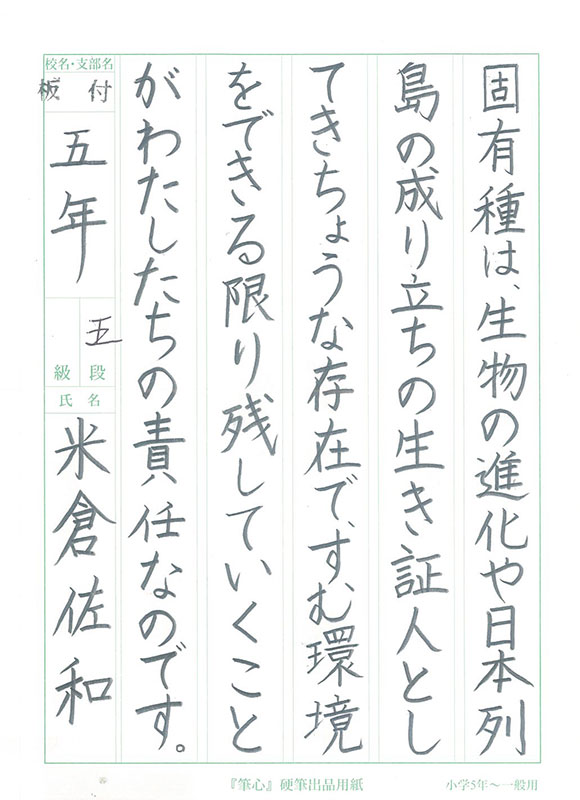 固有種は、生物の進化や日本列
島の成り立ちの生き証人とし
てきちょうな存在で、すむ環境
をできる限り残していくこと
がわたしたちの責任なのです。
校名・支部名
板付
五年
五
級段
氏名
米倉佐和
『筆心』硬筆出品用紙
小学5年〜一般用